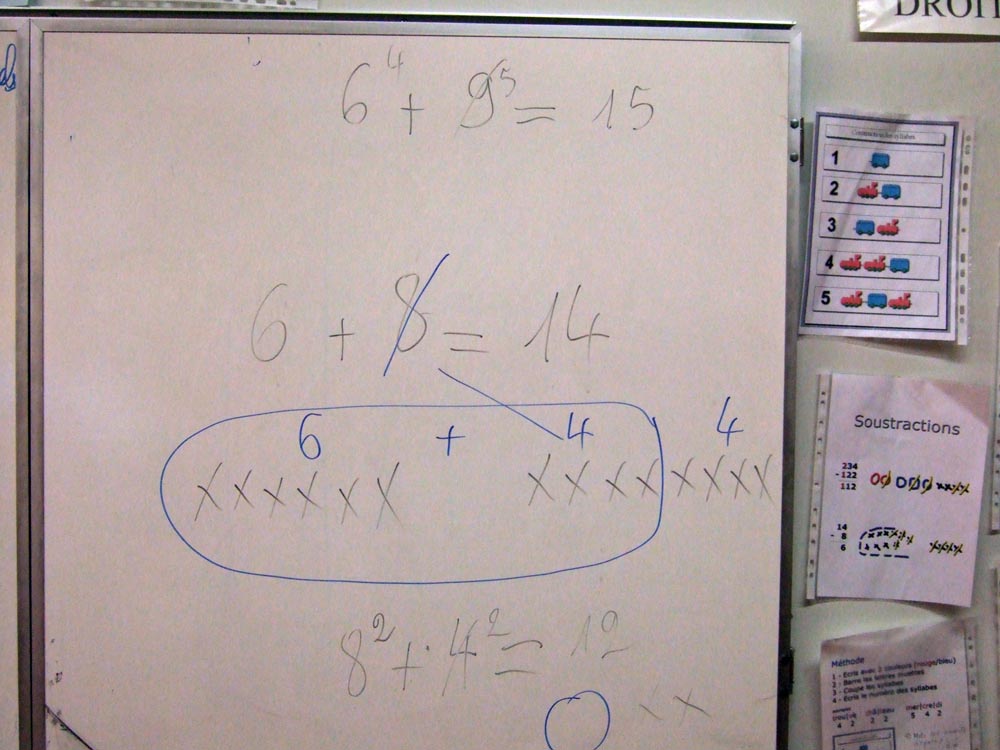 6⁴ + 9⁵ = 15
6 + 8 = 14
6 + 4 4
XXXXXX XXXXXXXX
8² + 4² = 12
XX
DROI
1
2
3
4
5
Soustractions
234
-122
112
14
- 8
6
Méthode
1 - Ecris avec 2 couleurs (rouge/bleu)
2 - Barre les lettres muettes
3 - Coupe les syllabes
4 - Ecris le numéro des syllabes
4 2 2 2 5 4 2